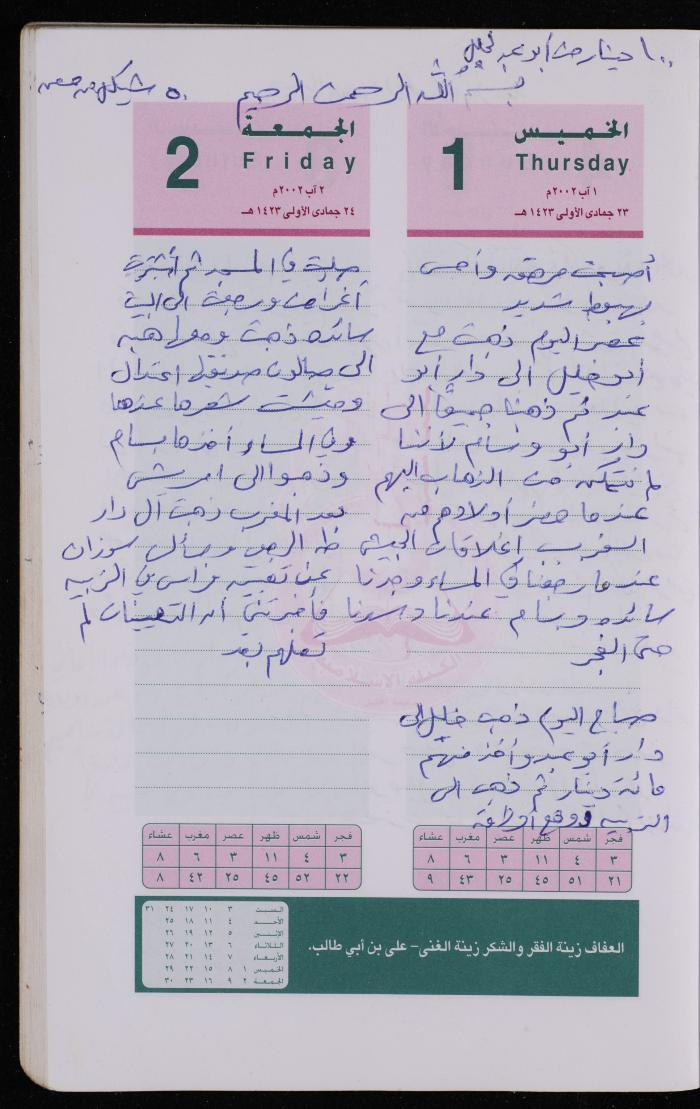 ١٠٠ دينار من أبو عبد
بسم الله الرحمن الرحيم
٥٠ شيكل من
الخميس
Thursday
1
١ آب ٢٠٠٢م
٢٣ جمادى الأولى ١٤٢٣ هـ
أصبحت مرهقة وأحس
بهبوط شديد
عصر اليوم ذهبت مع
أبو خليل الى دار أبو
عبد ثم ذهبنا جميعًا الى
دار أبو وسام لأننا
لم نتمكن من الذهاب اليهم
عندما حضر أولادهم من
السفر بسبب إغلاقات الجيش
عندما رجعنا في المساء وجدنا
سائده وبسام عندنا وسهرنا
حتى الفجر
صباح اليوم ذهب خليل الى
دار أبو عبد وأخذ منهم
مائة دينار ثم ذهب الى
التربيه ووقع أوراقه
فجر شمس ظهر عصر مغرب عشاء
٣ ٤ ١١ ٣ ٦ ٨
٢١ ٥١ ٤٥ ٢٥ ٤٣ ٩
الجمعة
Friday
2
٢ آب ٢٠٠٢م
٢٤ جمادى الأولى ١٤٢٣ هـ
صليت في المسجد ثم أشتريت
أغراض ورجعت الى البيت
سائده ذهبت ومعها هبه
الى صالون صديقتها اعتدال
ومشت شعرها عندها
وفي المساء أخذها بسام
وذهبوا الى
بعد المغرب ذهبت ال دار
طه الرجوب وسألت سوزان
عن تعيين فراس في التربيه
فأخبرتني أن التعيينات لم
تعلهم بعد
فجر شمس ظهر عصر مغرب عشاء
٣ ٤ ١١ ٣ ٦ ٨
٢٢ ٥٢ ٤٥ ٢٥ ٤٢ ٨
العفاف زينة الفقر والشكر زينة الغنى - على بن أبي طالب.
السبت ٣ ١٠ ١٧ ٢٤ ٣١
الأحد ٤ ١١ ١٨ ٢٥
الإثنين ٥ ١٢ ١٩ ٢٦
الثلاثاء ٦ ١٣ ٢٠ ٢٧
الأربعاء ٧ ١٤ ٢١ ٢٨
الخميس ١ ٨ ١٥ ٢٢ ٢٩
الجمعة ٢ ٩ ١٦ ٢٣ ٣٠
الكتلة الإسلامية